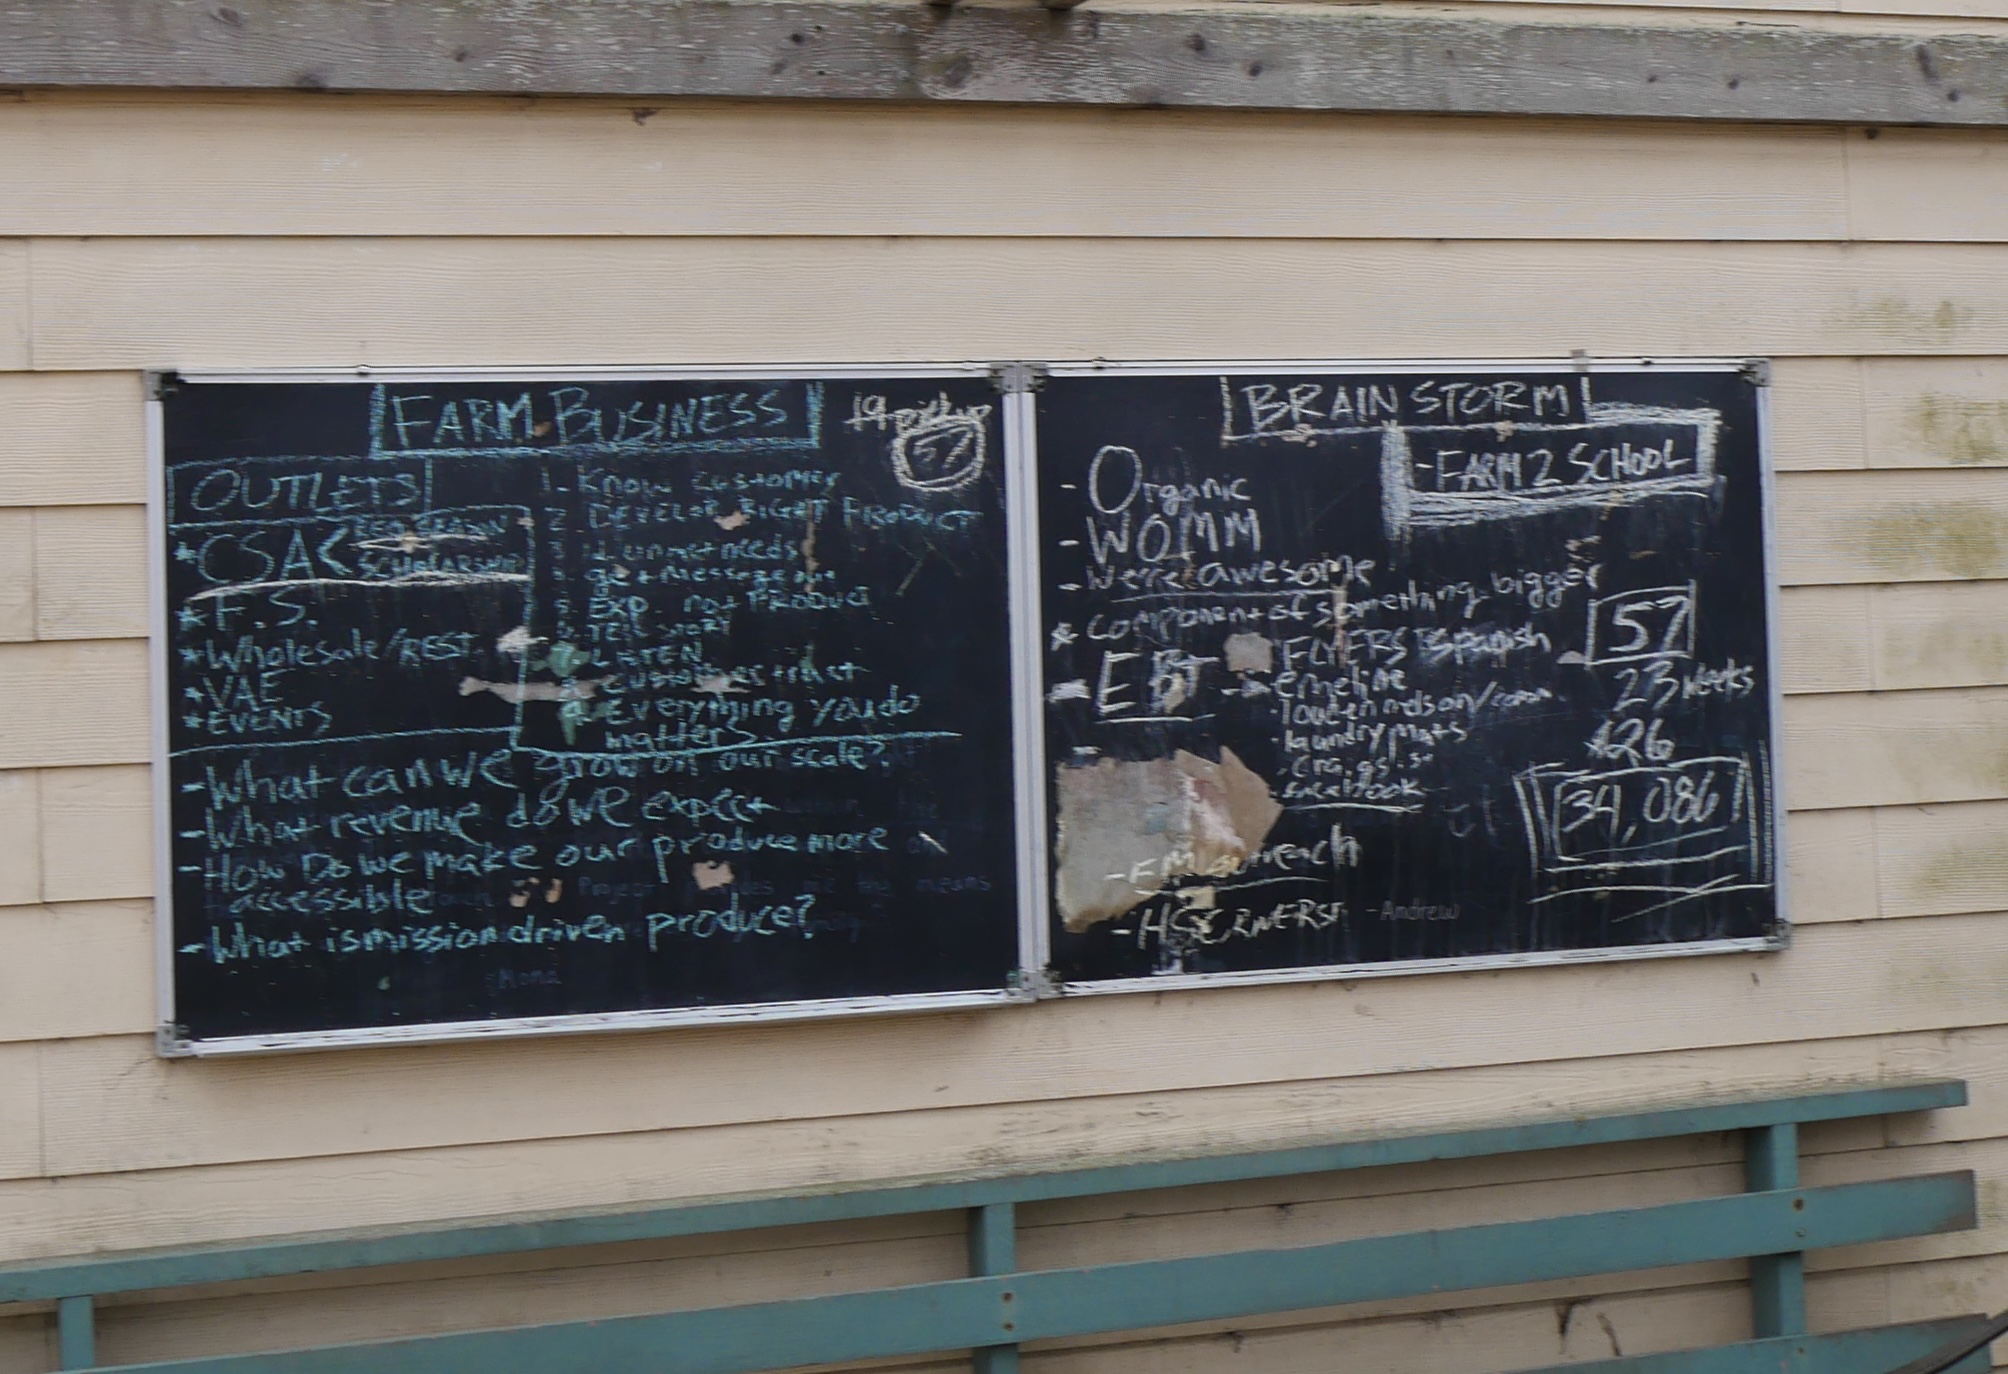 FARM BUSINESS
19 pickup
57
OUTLETS
* CSA < REG SEASON
SCHOLARSHIP
* F.S.
* Wholesale/REST.
* VAE
* EVENTS
1. Know customer
2. DEVELOP RIGHT PRODUCT
3. id unmet needs
get message out
5. EXP. not PRODUCT
TELL STORY
LISTEN
customers trust
Everything you do
matters
- What can we grow on our scale?
- What revenue do we expect
- How Do we make our produce more
accessible
- What is mission driven produce?
Kona
BRAIN STORM
- FARM 2 SCHOOL
- Organic
- WOMM
- We're awesome
* component of something bigger
- EBT
- FLYERS Spanish
- emeline
- louden nelson/comm.
- laundry mats
- craigslist
- facebook
57
23 weeks
x 26
34,086
- FM outreach
- Andrew